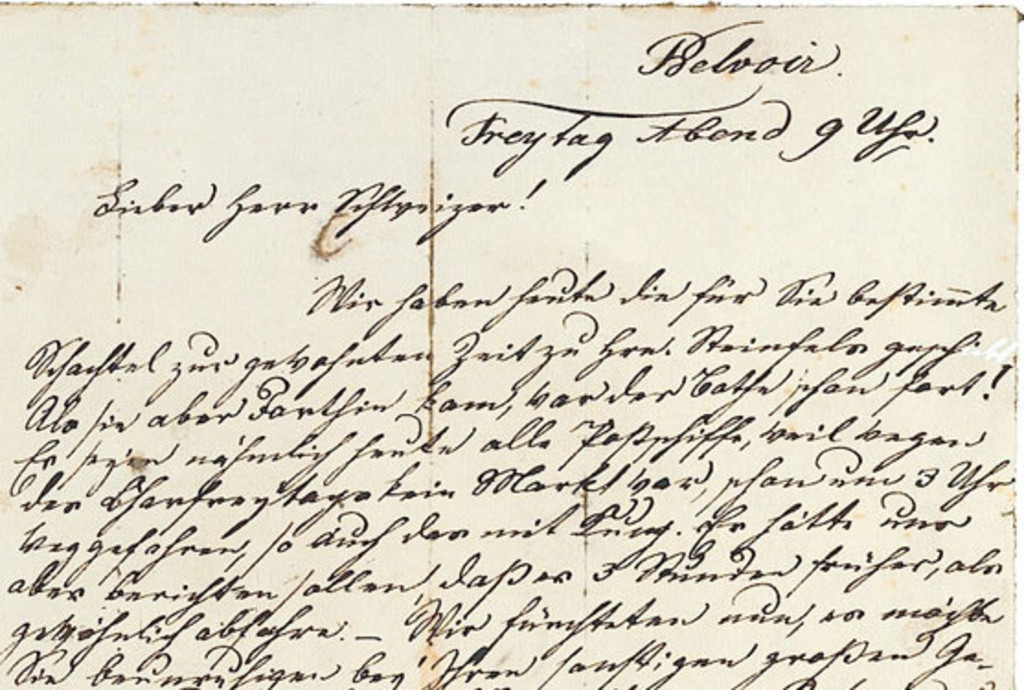 Belvoir.
Freytag Abend 9 Uhr.
Lieber Herr Schweizer!
Wir haben heute die für Sie bestimmte
Schachtel zur gewohnten Zeit zu Hrn. Steinfels geschickt
Als sie aber dorthin kam, war der Bothe schon fort!
Es seyen nähmlich heute alle Postschiffe, weil wegen
des Charfreytags kein Markt war, schon um 3 Uhr
weggefahren, so auch das mit Küng. Er hätte uns
aber berichten sollen, daß er 3 Stunden früher, als
gewöhnlich abfahre. – Wir fürchteten nun, es möchte
Sie beunruhigen bey Ihren sonstigen großen Ge-